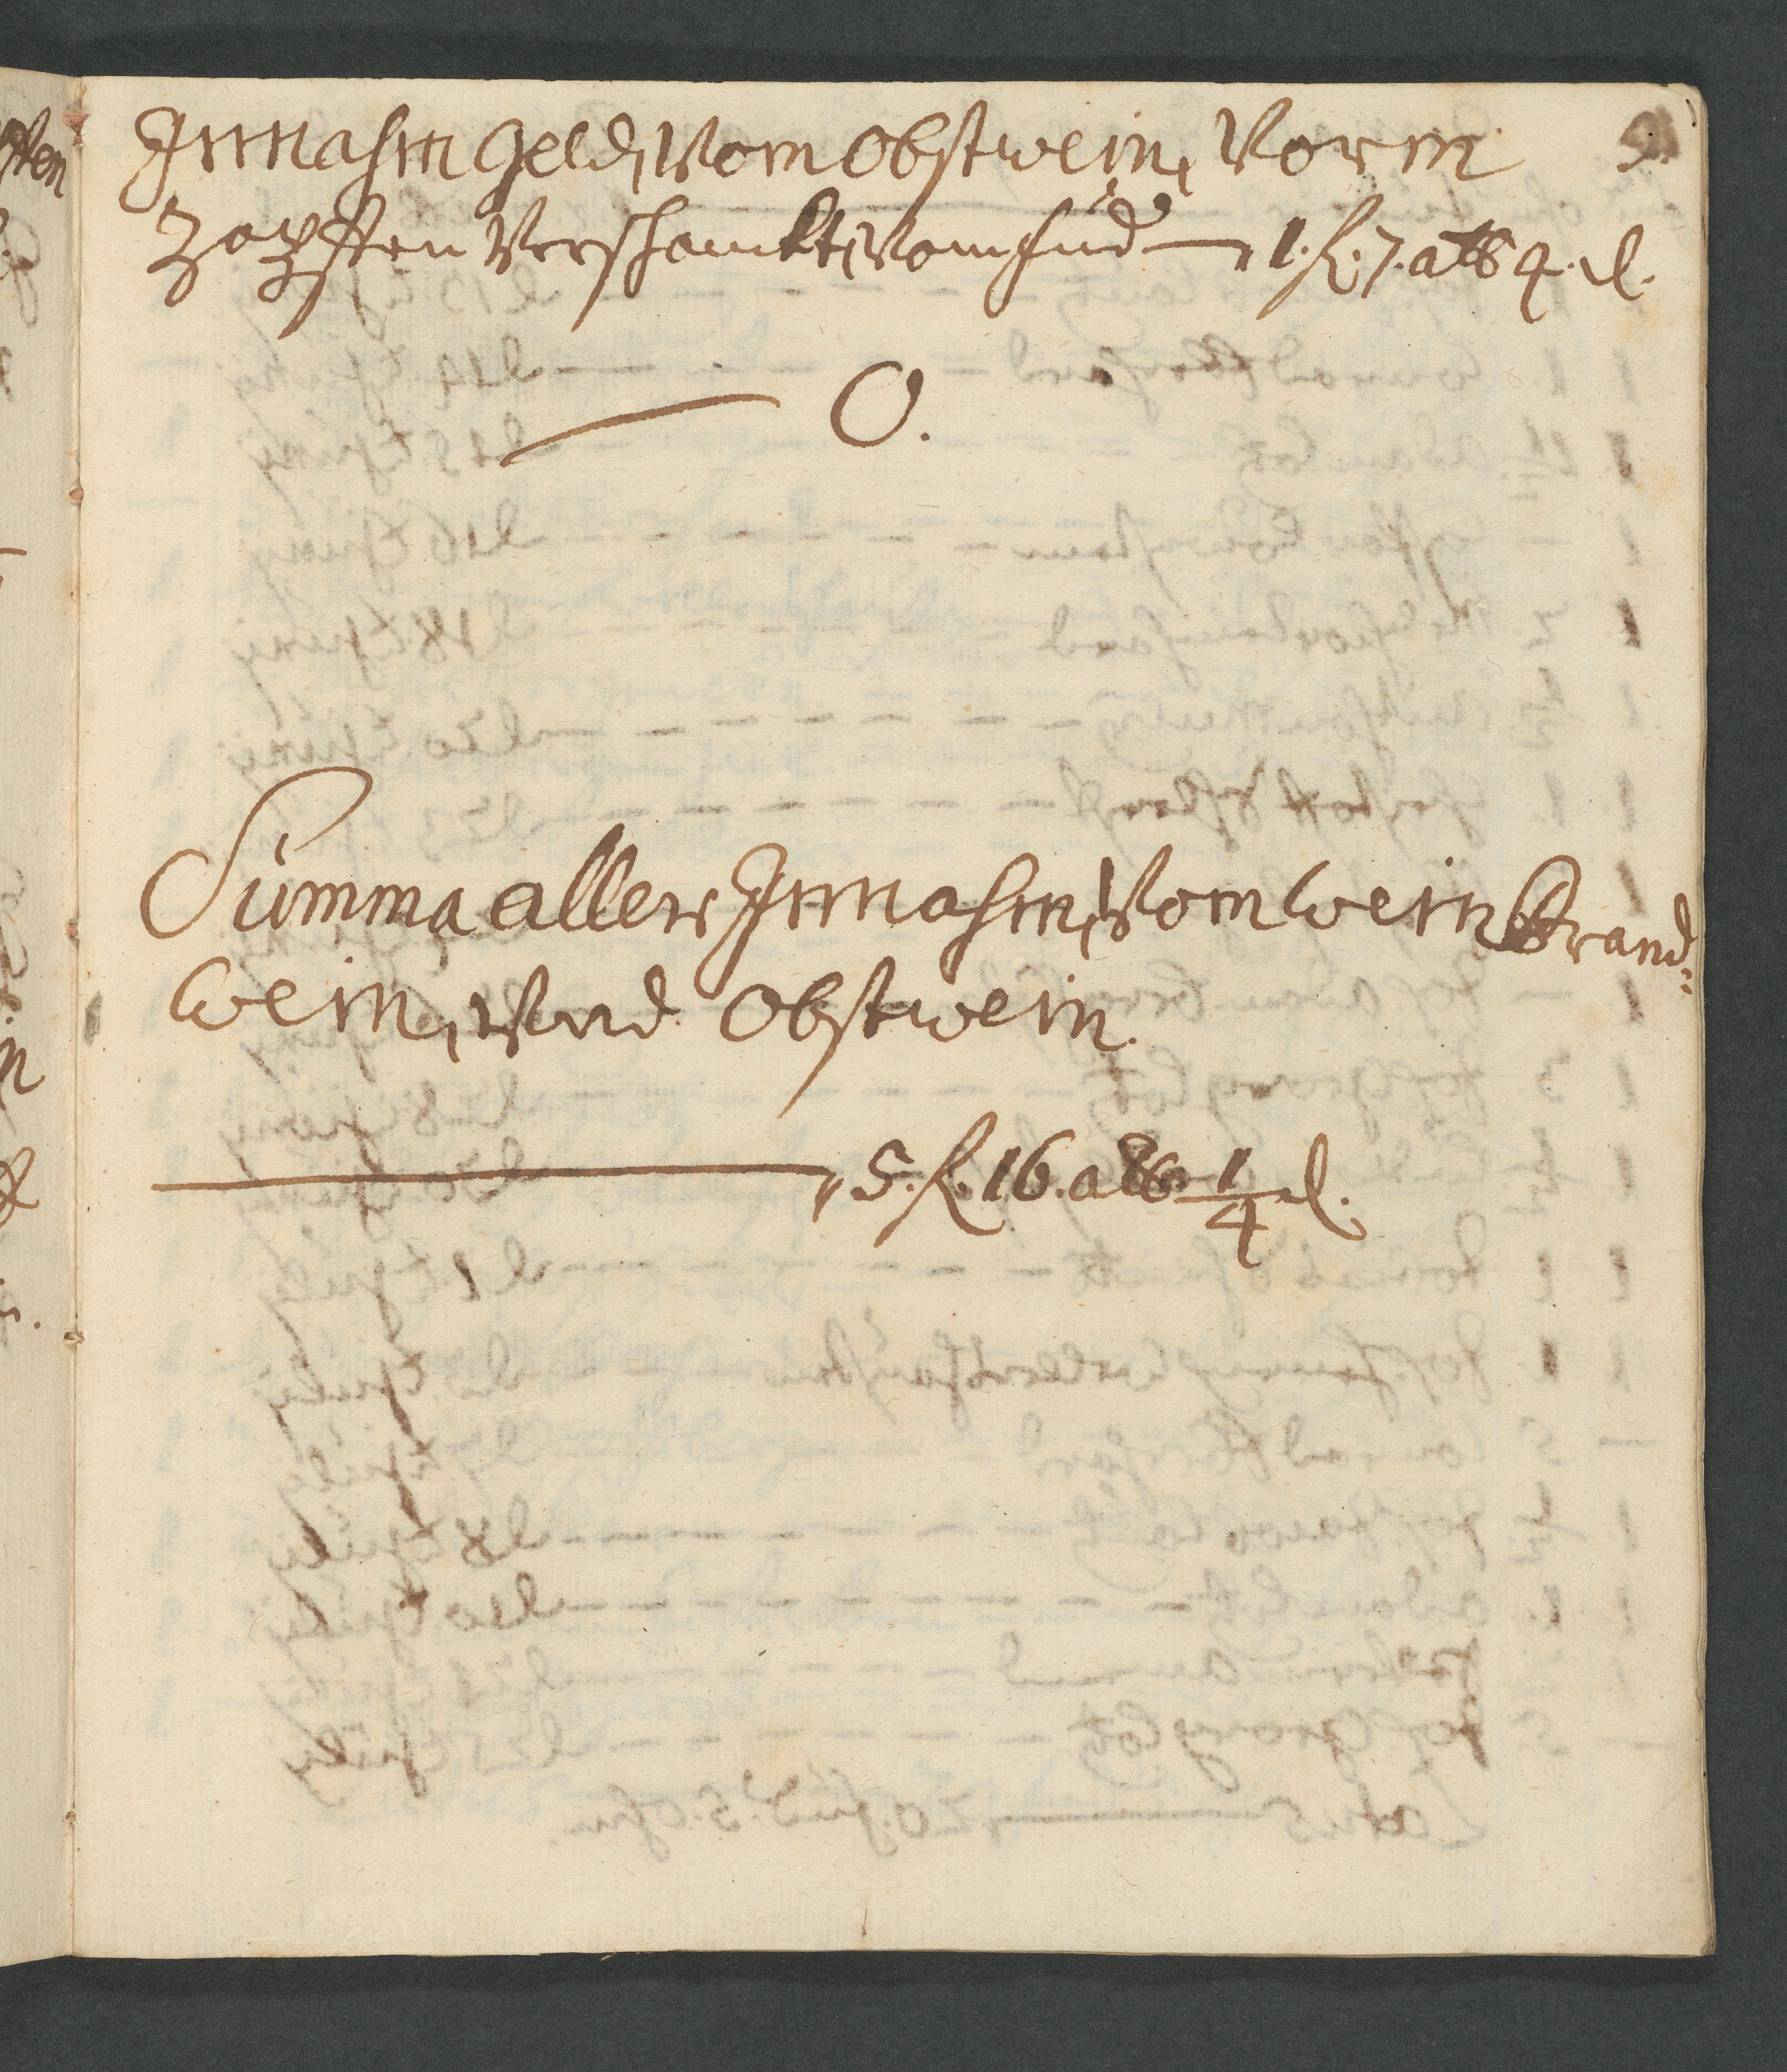 Innnahm Geld, Vom Obstwein, Vorm
Zapfften Verschanckt, Vom fud. 1. fl. 7. alb 4. d.
O.
Summa aller Innnahm, Vom Wein, Brand=
Wein, Vnd Obstwein.
5. fl. 16. alb. 1/4 d.